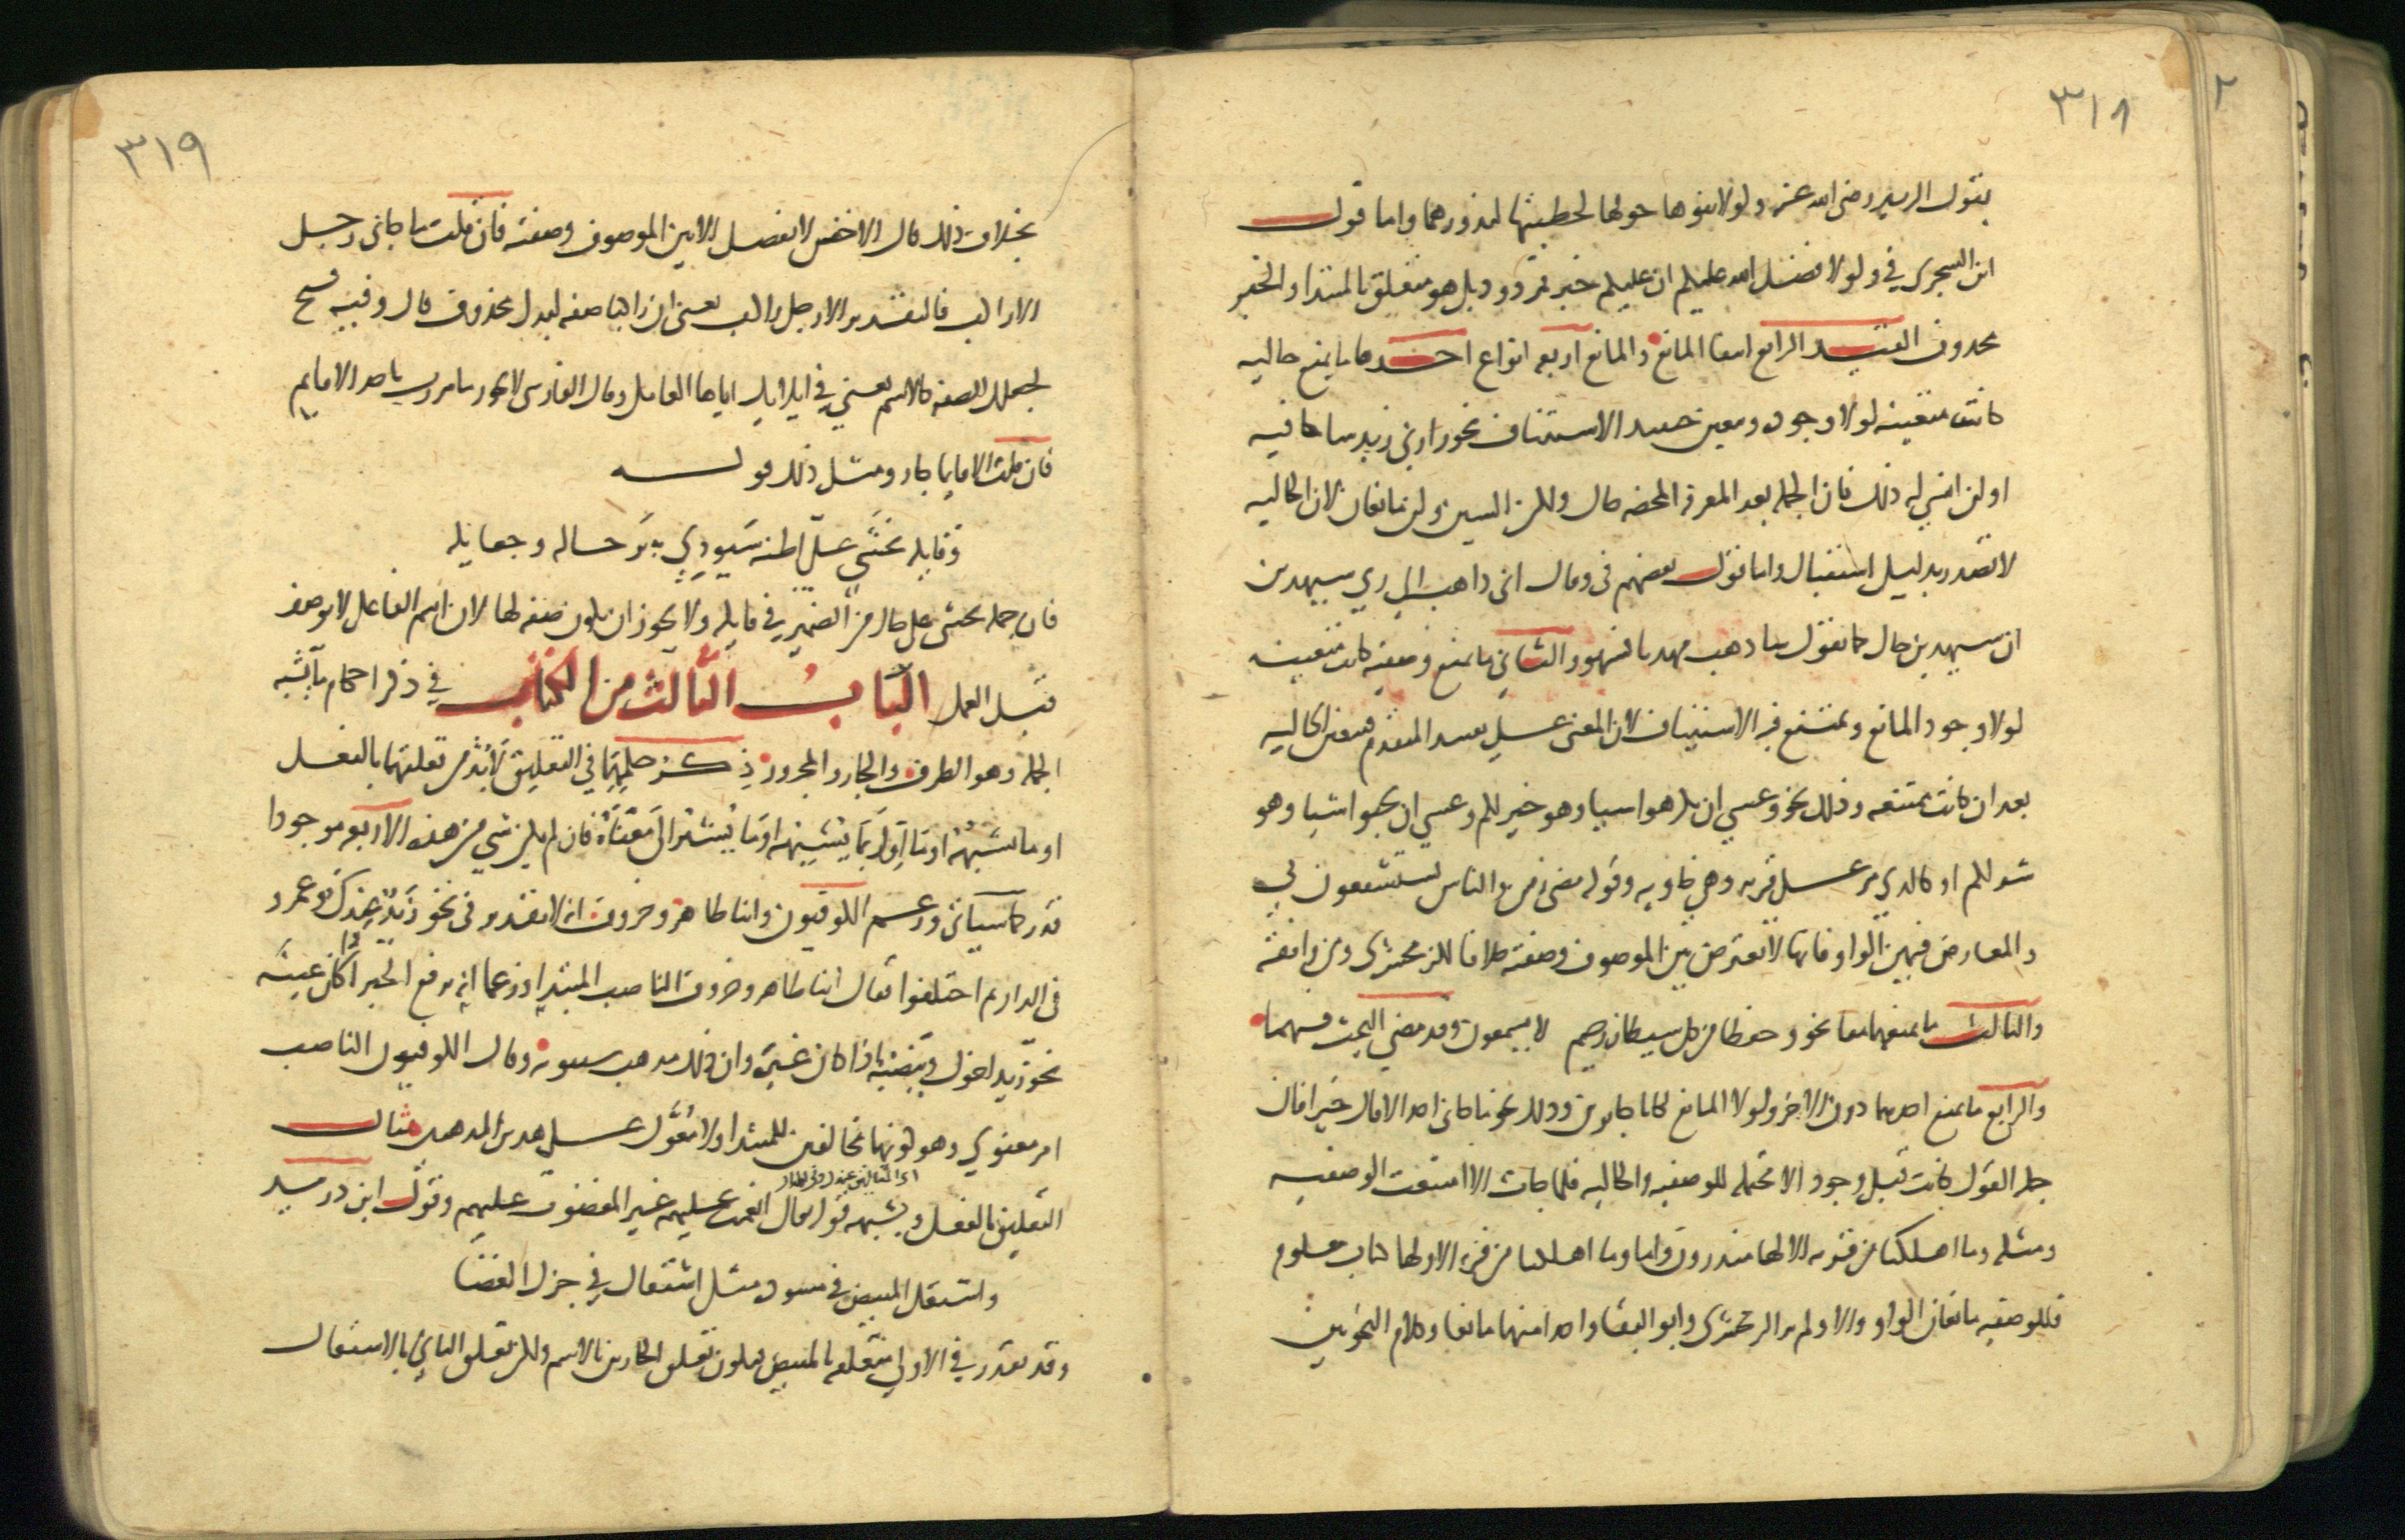 ٣١٨
بقول الزبير رضى الله عنه ولولا بنوها حولها لخطبتها لمذورهما واما قول
ابن الشجري في ولولا فضل الله عليكم ان عليكم خبر فمردود بل هو متعلق بالمبتدا والخبر
محذوف القيد الرابع انتفا المانع والمانع اربعه انواع احدها ما يمنع حاليه
كانت متعينه لولا وجوده ويتعين حينئذ الاستئناف نحو زارني زيد ساكافيه
او لن انسي له ذلك فان الجمله بعد المعرفه المحضه حال ولكن السين ولن مانعان لان الحاليه
لا تصدر بدليل استقبال واما قول بعضهم في وقال اني ذاهب الى ربي سيهدين
ان سيهدين حال كما تقول ساذهب مهديا فسهو والثاني ما يمنع وصفيه كانت متعينه
لولا وجود المانع ويمتنع فيه الاستئناف لان المعنى على تقييد المتقدم فتتعين الحاليه
بعد ان كانت ممتنعه وذلك نحو وعسى ان تكرهوا شيا وهو خير لكم وعسى ان تحبوا شيا وهو
شر لكم او كالذي مر على قريه وهي خاويه وقوله مضى زمن والناس يستشفعون بي
والمعارض فيهن الواو فانها لا تعترض بين الموصوف وصفته خلافا للزمخشري ومن وافقه
والثالث ما يمنعهما معا نحو وحفظا من كل شيطان رجيم لا يسمعون وقد مضى البحث فيهما
والرابع ما يمنع احدهما دون الاخر ولولا المانع لكانا جايزين وذلك نحو ما جاني احد الا قال خيرا فان
جمله القول كانت قبل وجود الا محتمله للوصفيه والحاليه فلما جات الا امتنعت الوصفيه
ومثله وما اهلكنا من قريه الا لها منذرون واما وما اهلكنا من قريه الا ولها كتاب معلوم
فللوصفيه مانعان الواو والا ولم ير الزمخشري وابو البقا واحدا منهما مانعا وكلام النحويين
٣١٩
بخلاف ذلك قال الاخفش لا يفصل الا بين الموصوف وصفته فان قلت ما جاني رجل
الا راكب فالتقدير الا رجل راكب يعني ان راكبا صفه لبدل محذوف قال وفيه قبح
لجعلك الصفه كالاسم يعني في ايلائك اياها العامل وقال الفارسي لا يجوز ما مررت باحد الا قايم
فان قلت الا قايما جاز ومثل ذلك قوله
وقايله تخشى علي اظنه سيودي به ترحاله وجعايله
فان جمله تخشى علي حال من الضمير في قايله ولا يجوز ان يكون صفه لها لان اسم الفاعل لا يوصف
قبل العمل الباب الثالث من الكتاب في ذكر احكام ما يشبه
الجمله وهو الظرف والجار والمجرور ذكر حكمهما في التعليق لا بد من تعلقهما بالفعل
او ما يشبهه او ما اول بما يشبهه او ما يشير الى معناه فان لم يكن شي من هذه الاربعه موجودا
قدر كما سياتي وزعم الكوفيون وابنا طاهر وخروف انه لا تقدير في نحو زيد عندك وعمرو
في الدار ثم اختلفوا فقال ابنا طاهر وخروف الناصب المبتدا وزعما انه يرفع الخبر اذا كان عينه
نحو زيد اخوك وينصبه اذا كان غيره وان ذلك مذهب سيبويه وقال الكوفيون الناصب
امر معنوي وهو كونهما مخالفين للمبتدا ولا معول على هذين المذهبين مثال
التعليق بالفعل وشبهه قوله تعالى انعمت عليهم غير المغضوب عليهم وقول ابن دريد
واشتعل المبيض في مسوده مثل اشتعال في جزل الغضا
وقد تقدر في الاولى متعلقه بالمبيض فيكون تعلق الجارين بالاسم ولكن تعلق الثاني بالاشتعال